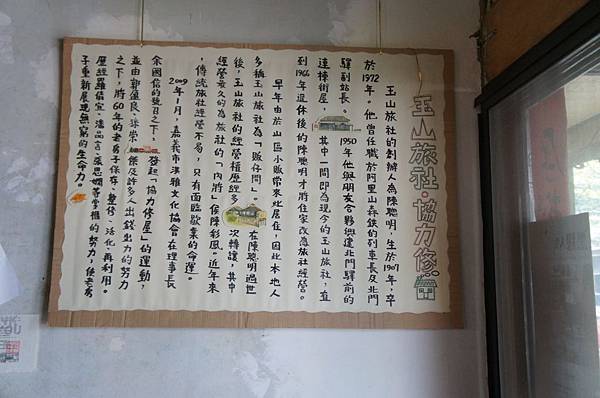 玉山旅社・協力修
玉山旅社的創辦人為陳聰明，生於1907年，卒
於1972年。他曾任職於阿里山森鐵的列車長及北門
驛副站長。1950年他與朋友合夥興建北門驛前的
連棟街屋，其中一間即為現今的玉山旅社，直
到1966年退休後的陳聰明才將住家改為旅社經營。
早年由於山區小販常來此居住，因此本地人
多稱玉山旅社為「販仔間」。在陳聰明過世
後，玉山旅社的經營權歷經多次轉讓，其中
經營最久的為旅社的「內將」侯陳彩鳳。近年來
，傳統旅社經營不易，只有面臨歇業的命運。
2009年1月，嘉義市洪雅文化協會在理事長
余國信的號召之下，發起「協力修屋」的運動，
並由郭盈良、徐崇傑及許多人出錢出力的努力
之下，將60年的老房子保存、整修、活化、再利用。
歷經羅倩宜、潘品言、張思嫻等掌櫃的努力，使老房
子重新展現無窮的生命力。